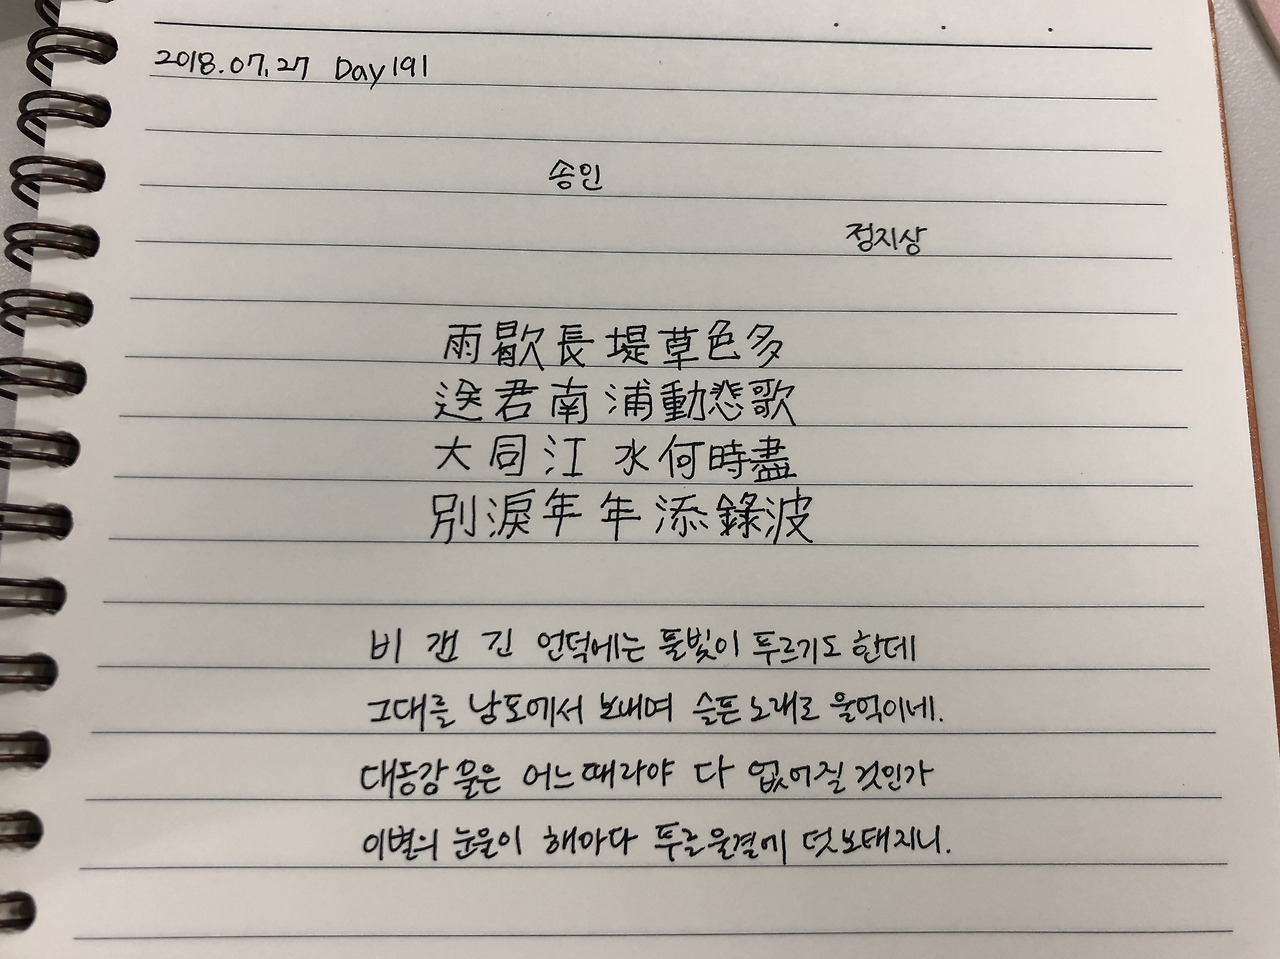 2018.07.27 Day 191
송인
정지상
雨歇長堤草色多
送君南浦動悲歌
大同江水何時盡
別淚年年添錄波
비 갠 긴 언덕에는 풀빛이 푸르기도 한데
그대를 남포에서 보내며 슬픈 노래로 울먹이네.
대동강 물은 어느 때라야 다 없어질 것인가
이별의 눈물이 해마다 푸른 물결에 덧보태지니.